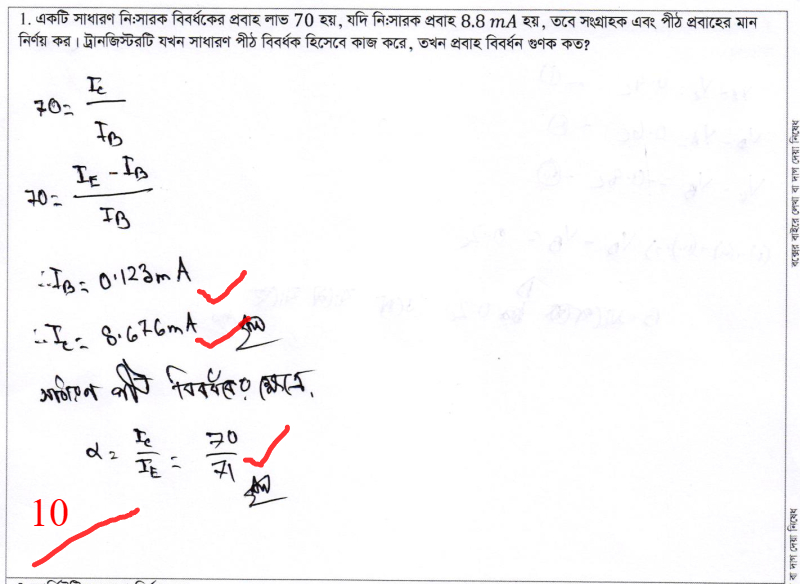 1. একটি সাধারণ নিঃসারক বিবর্ধকের প্রবাহ লাভ 70 হয়, যদি নিঃসারক প্রবাহ 8.8 mA হয়, তবে সংগ্রাহক এবং পীঠ প্রবাহের মান
নির্ণয় কর। ট্রানজিস্টরটি যখন সাধারণ পীঠ বিবর্ধক হিসেবে কাজ করে, তখন প্রবাহ বিবর্ধন গুণক কত?
70 = I_C / I_B
70 = (I_E - I_B) / I_B
∴ I_B = 0.123mA
∴ I_C = 8.676mA
সাধারণ পীঠ বিবর্ধকের ক্ষেত্রে,
α = I_C / I_E = 70 / 71
10
বক্সের বাইরে লেখা বা দাগ দেয়া নিষেধ
বা দাগ দেয়া নিষেধ